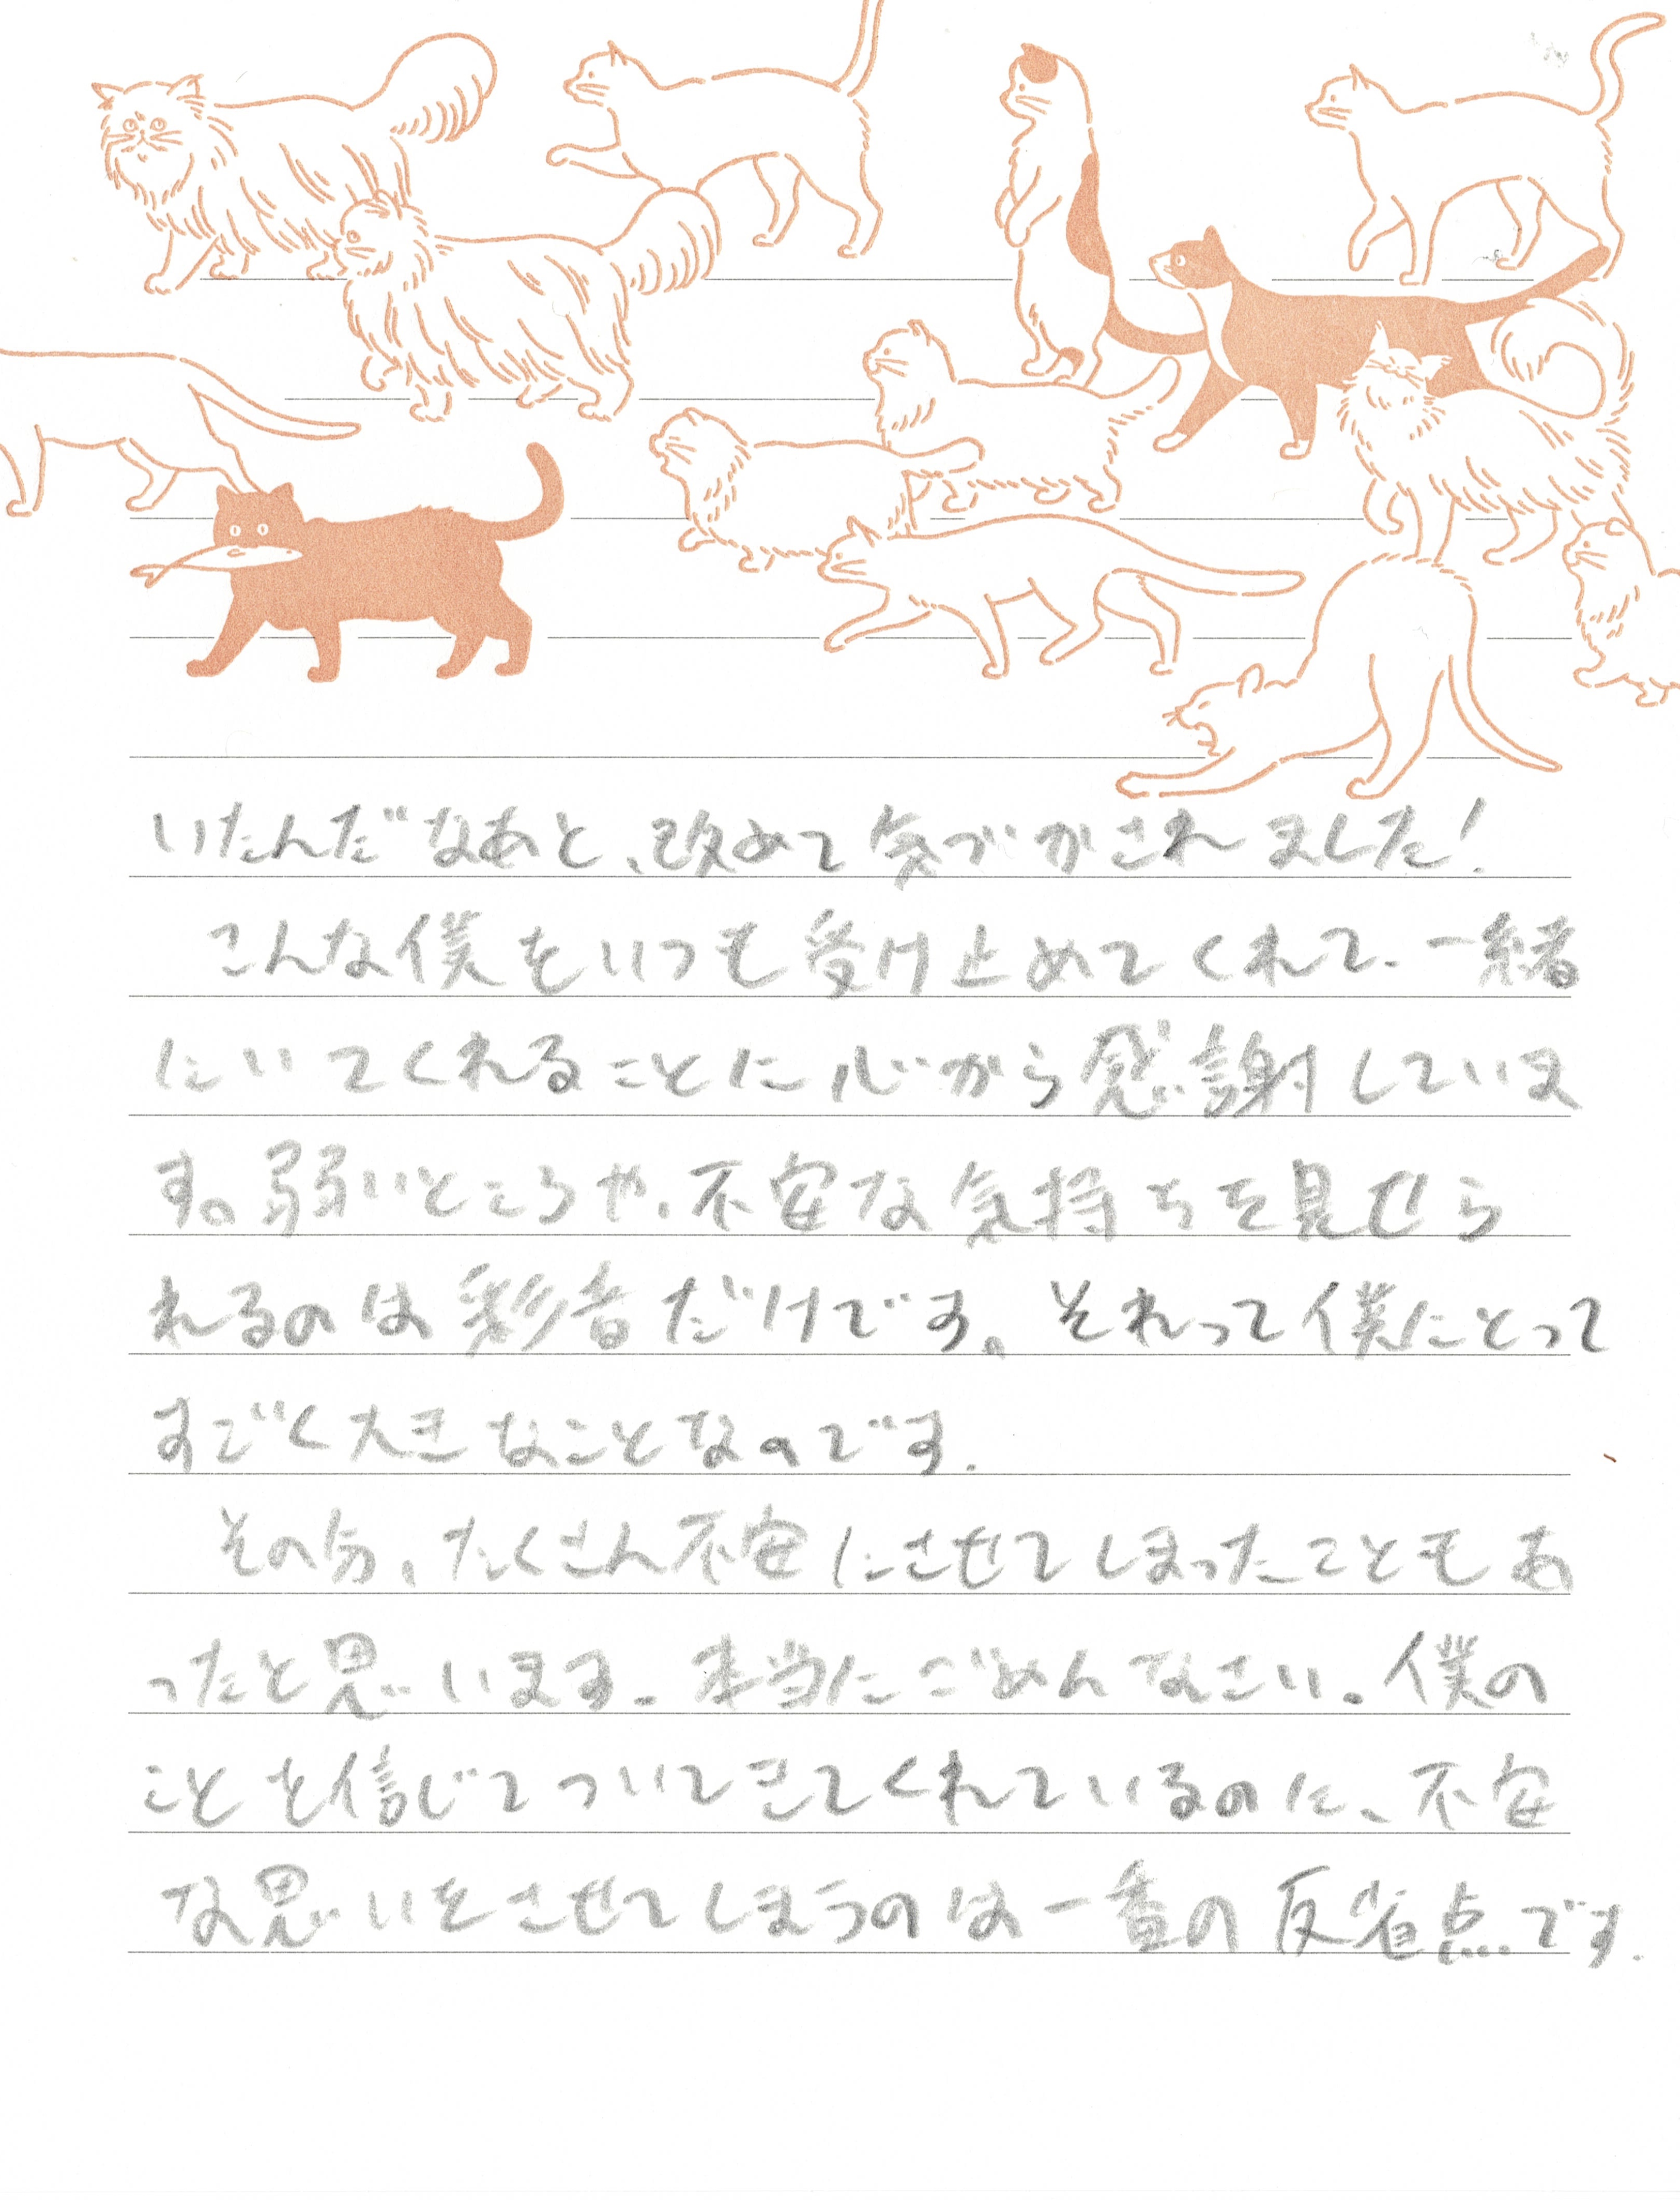 いたんだなあと、改めて気づかされました!
こんな僕をいつも受け止めてくれて、一緒
にいてくれることに心から感謝していま
す。弱いところや、不安な気持ちを見せら
れるのは彩音だけです。それって僕にとって
すごく大きなことなのです。
その分、たくさん不安にさせてしまったこともあ
ったと思います。本当にごめんなさい。僕の
ことを信じてついてきてくれているのに、不安
な思いをさせてしまうのは一番の反省点です。